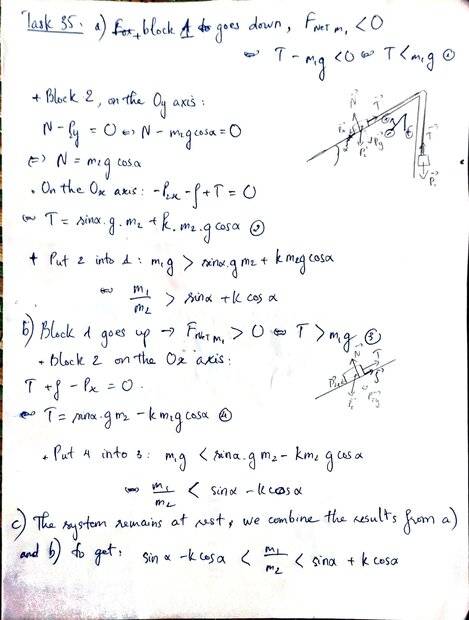 Task 35: a) For block 1 to goes down, F_NET m₁ < 0
⇔ T - m₁g < 0 ⇔ T < m₁g ①
+ Block 2, on the Oy axis:
N - Py = 0 ⇔ N - m₂g cosα = 0
⇔ N = m₂g cosα
. On the Ox axis: -P₂x - f + T = 0
⇔ T = sinα.g.m₂ + k.m₂.g cosα ②
+ Put 2 into 1: m₁g > sinα.g m₂ + k m₂g cosα
⇔ m₁/m₂ > sinα + k cosα
b) Block 1 goes up → F_NET m₁ > 0 ⇔ T > m₁g ③
+ Block 2 on the Ox axis:
T + f - Px = 0.
⇔ T = sinα.g m₂ - k m₂g cosα ④
. Put 4 into 3: m₁g < sinα.g m₂ - k m₂ g cosα
⇔ m₁/m₂ < sinα - k cosα
c) The system remains at rest, we combine the results from a)
and b) to get: sinα - k cosα < m₁/m₂ < sinα + k cosα